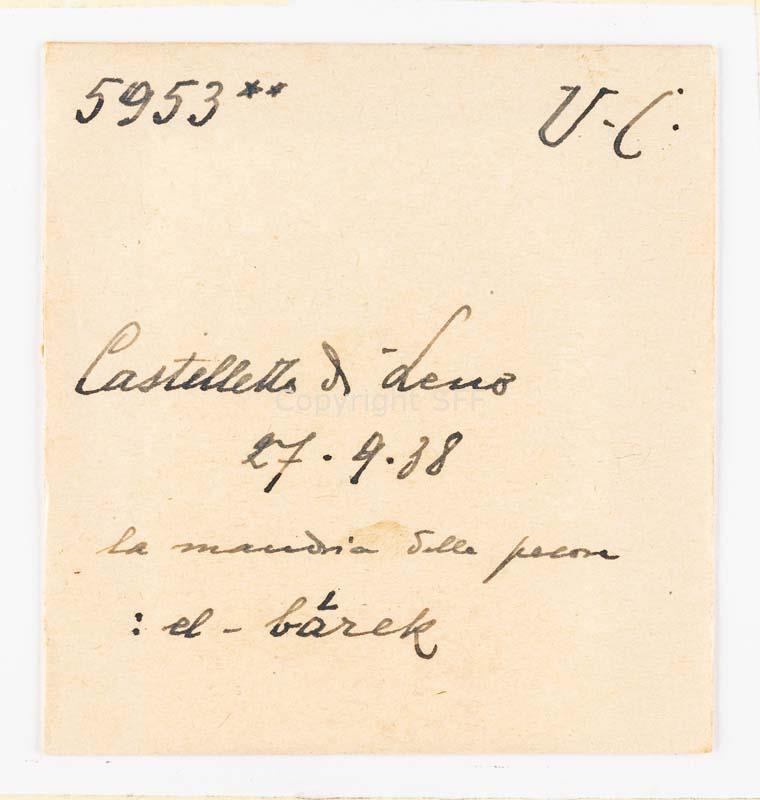 5953** U-C.
Castelletto di Leno
Copyright SFF
27.9.38
la mandria delle pecore
: el-bárek